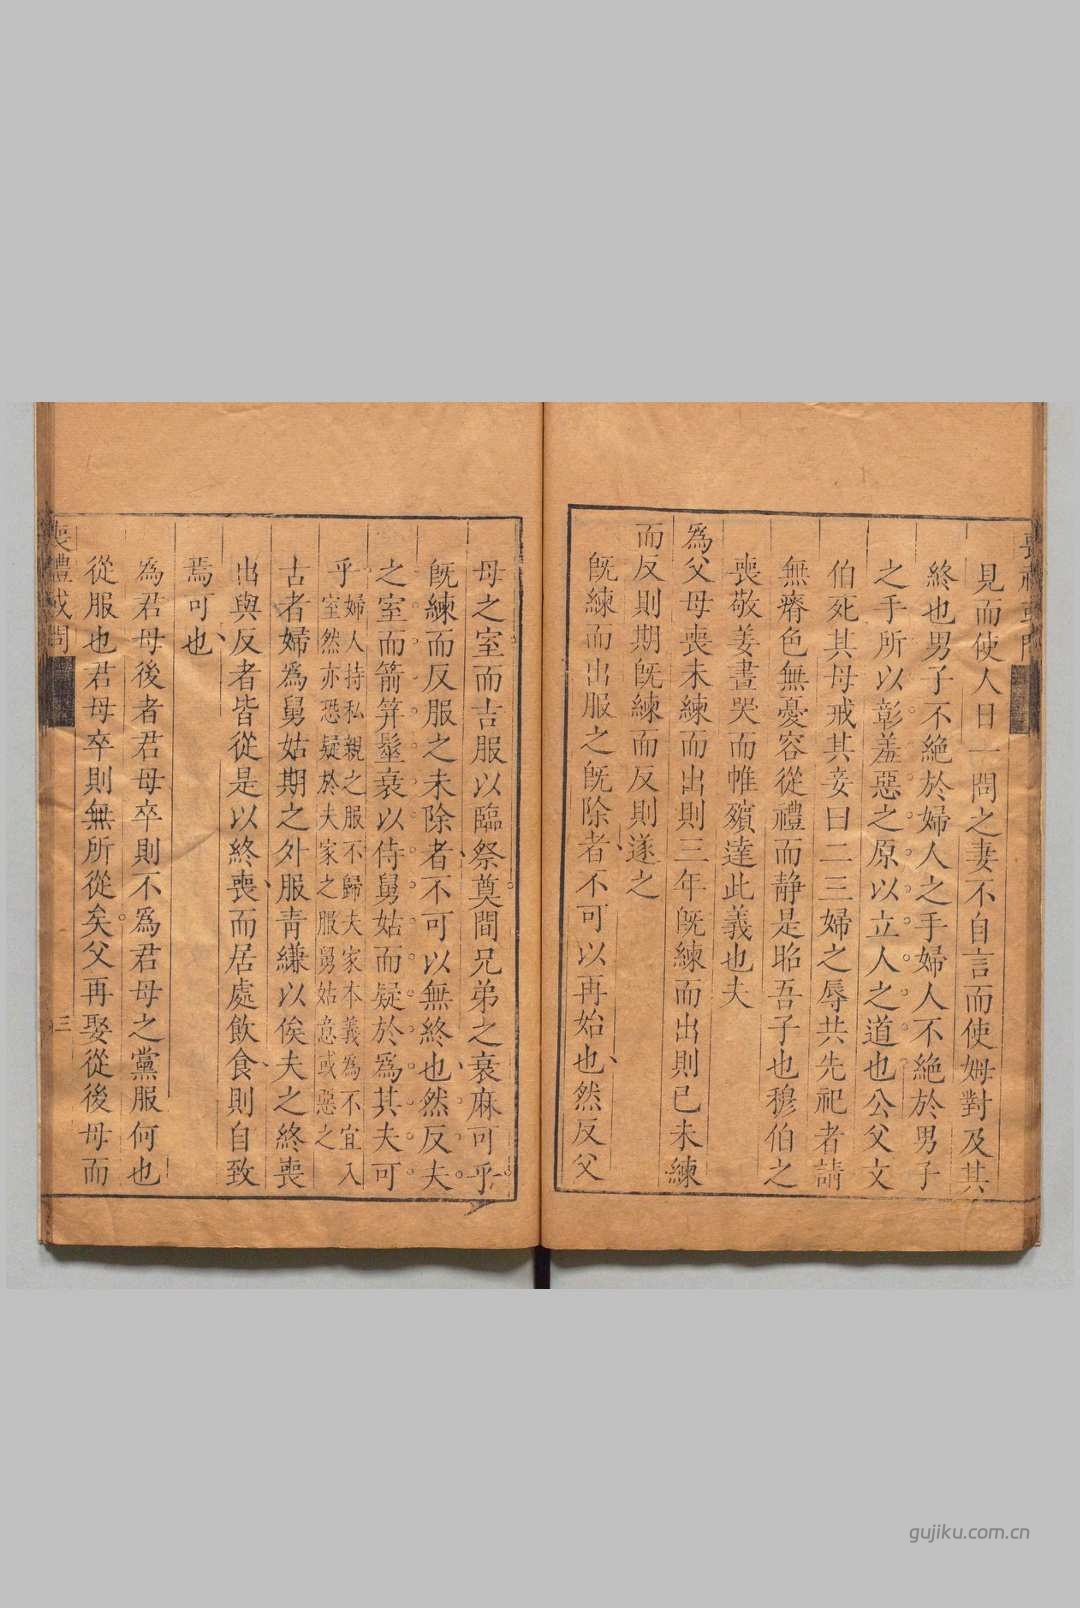 見而使人日一問之妻不自言而使姆對及其
終也男子不絕於婦人之手婦人不絕於男子
之手所以彰羞惡之原以立人之道也公父文
伯死其母戒其妾曰二三婦之辱共先祀者請
無瘠色無憂容從禮而靜是昭吾子也穆伯之
喪敬姜晝哭而帷殯達此義也夫
為父母喪未練而出則三年旣練而出則已未練
而反則期旣練而反則遂之
旣練而出服之旣除者不可以再始也然反父
母之室而吉服以臨祭奠間兄弟之衰麻可乎
旣練而反服之未除者不可以無終也然反夫
之室而箭筓髽衰以侍舅姑而疑於為其夫可
乎婦人持私親之服不歸夫家本義為不宜入
室然亦恐疑於夫家之服舅姑意或惡之
古者婦為舅姑期之外服靑縑以俟夫之終喪
出與反者皆從是以終喪而居處飲食則自致
焉可也
為君母後者君母卒則不為君母之黨服何也
從服也君母卒則無所從矣父再娶從後母而
喪禮或問
三
gujiku.com.cn